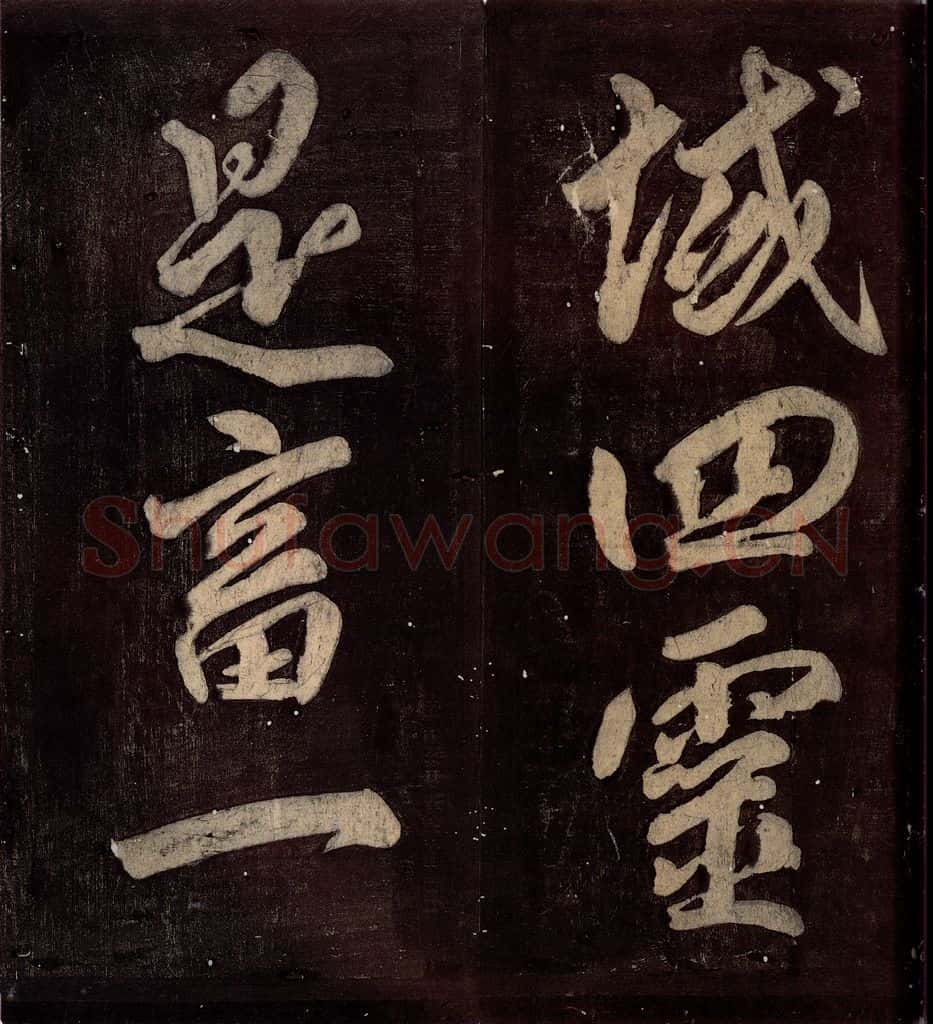 域四靈
是富一
Shufawang.CN